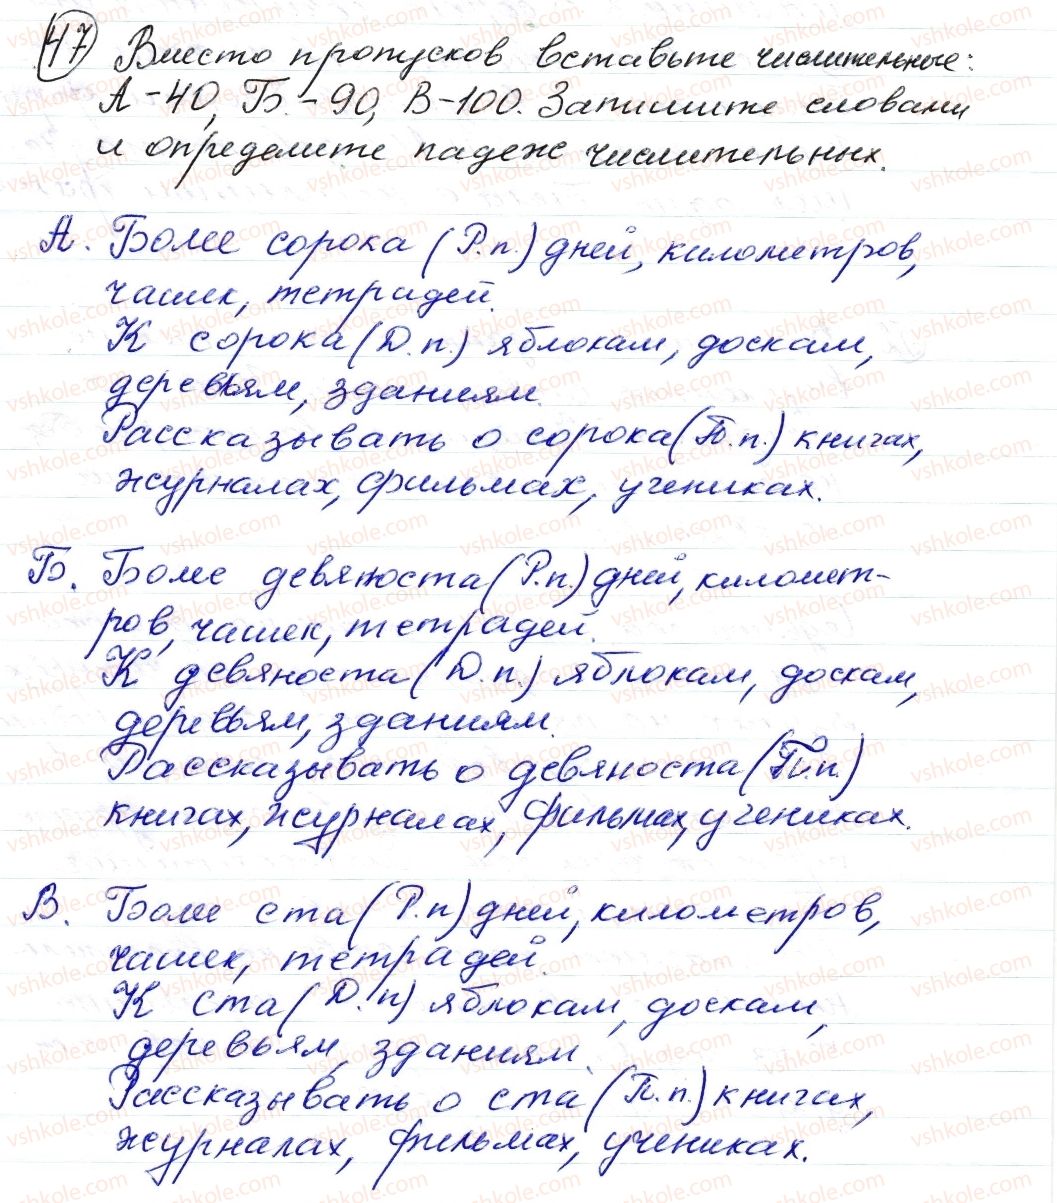 47 Вместо пропусков вставьте числительные:
А-40, Б-90, В-100. Запишите словами
и определите падеж числительных.
А. Более сорока (Р.п.) дней, километров,
чашек, тетрадей.
К сорока (Д.п.) яблокам, доскам,
деревьям, зданиям.
Рассказывать о сорока (П.п.) книгах,
журналах, фильмах, учениках.
Б. Более девяноста (Р.п.) дней, километ-
ров, чашек, тетрадей.
К девяноста (Д.п.) яблокам, доскам,
деревьям, зданиям.
Рассказывать о девяноста (П.п.)
книгах, журналах, фильмах, учениках.
В. Более ста (Р.п) дней, километров,
чашек, тетрадей.
К ста (Д.п) яблокам, доскам,
деревьям, зданиям.
Рассказывать о ста (П.п.) книгах,
журналах, фильмах, учениках.